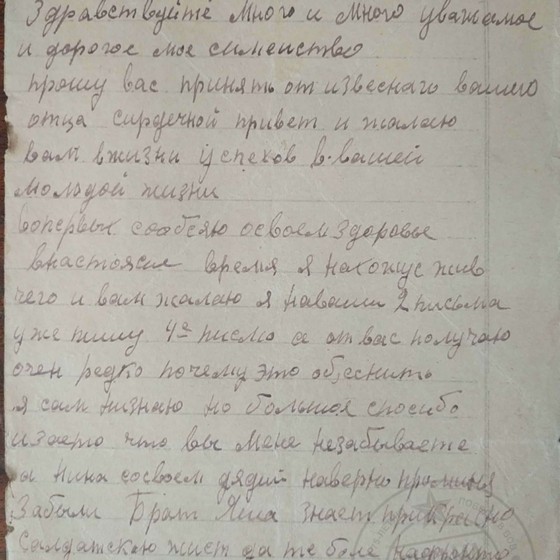 Здравствуйте много и много уважамое
и дорогое мое симейство
прошу вас принять от извеснаго вашего
отца сирдечной привет и жалаю
вам вжизни успехов в.вашей
молодой жизни
вопервых сообсяю освоем здоровье
внастоясие время я нахожус жив
чего и вам жалаю я наваши 2 письма
уже пишу 4е писмо а от вас получаю
очен редко почему это обеснить
я сам низнаю но большое спосибо
изаето что вы мене незабываете
а нина сосвоем дядий наверно
Забыли Брат Яша знает прикрасно
салдатскою жист да те боле